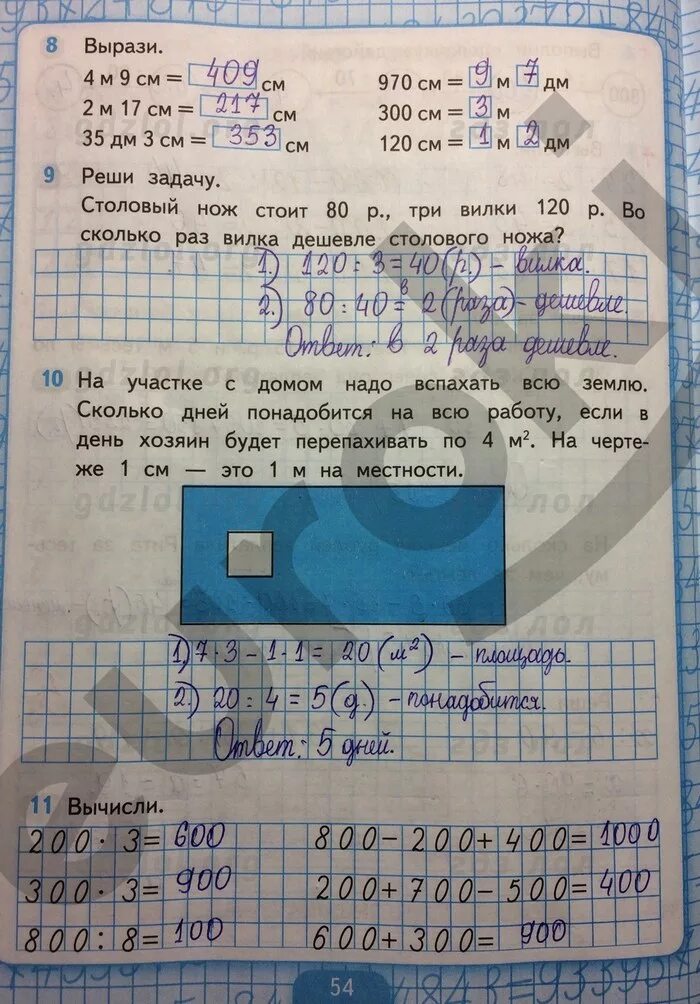 8 Вырази.
4 м 9 см = 409 см
970 см = 9 м 7 дм
2 м 17 см = 217 см
300 см = 3 м
35 дм 3 см = 353 см
120 см = 1 м 2 дм
9 Реши задачу.
Столовый нож стоит 80 р., три вилки 120 р. Во
сколько раз вилка дешевле столового ножа?
1) 120 : 3 = 40 (р.) – вилка.
2.) 80 : 40 = в 2 (раза) – дешевле.
Ответ: в 2 раза дешевле.
10 На участке с домом надо вспахать всю землю.
Сколько дней понадобится на всю работу, если в
день хозяин будет перепахивать по 4 м². На черте-
же 1 см — это 1 м на местности.
1) 7 · 3 – 1 · 1 = 20 (м²) – площадь.
2.) 20 : 4 = 5 (д.) – понадобится.
Ответ: 5 дней.
11 Вычисли.
200 · 3 = 600
800 – 200 + 400 = 1000
300 · 3 = 900
200 + 700 – 500 = 400
800 : 8 = 100
600 + 300 = 900
54
euroki